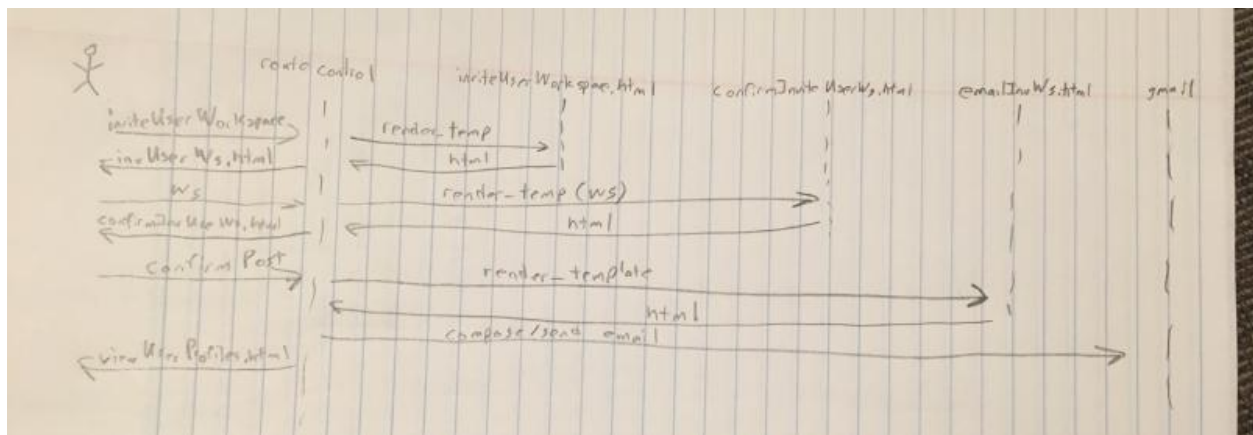 route control
inviteUserWorkspae.html
confirmInviteUserWs.html
emailInvWs.html
gmail
inviteUserWorkspace
render_temp
invUserWs.html
html
ws
render_temp (ws)
confirmInvUserWs.html
html
confirm Post
render_template
html
compose/send email
viewUserProfiles.html